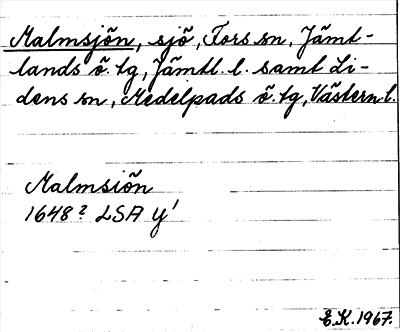 Malmsjön, sjö, Fors sn, Jämt-
lands ö. tg, Jämtl. l. samt Li-
dens sn, Medelpads ö. tg, Västern. l.
Malmsiön
1648? LSA Y'
E.K. 1967.